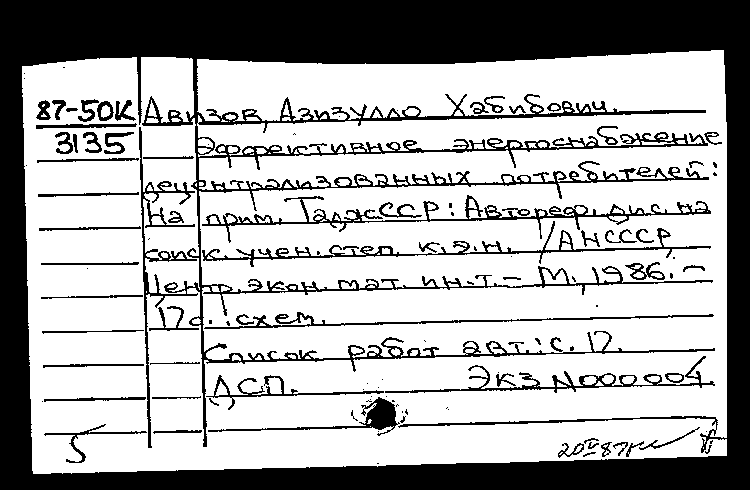 87-50К Авизов, Азизулло Хабибович.
3135 Эффективное энергоснабжение
децентрализованных потребителей:
На прим. ТаджССР: Автореф. дис. на
соиск. учен. степ. к.э.н. /АНСССР,
Центр. экон. мат. ин.т. - М., 1986. -
17с.: схем.
Список работ авт.: с. 17.
ДСП. Экз N000004.
5